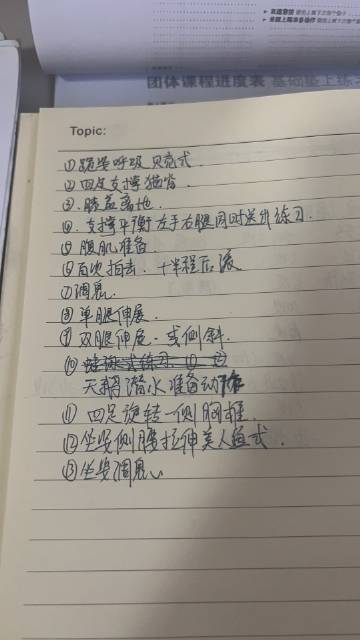 团体课程进度表 基础垫上练
Topic:
①跪坐呼吸 贝壳式.
②四足支撑猫背.
③.膝盖离地.
④.支撑平衡 左手右腿同时延升练习.
⑤腹肌准备.
⑥百次拍击. 十半程后滚
⑦调息.
⑧单腿伸展.
⑨双腿伸展.或侧斜.
⑩
天鹅潜水准备动作
⑪四足旋转一侧胸椎.
⑫坐姿侧腰拉伸美人鱼式.
⑬坐姿调息.